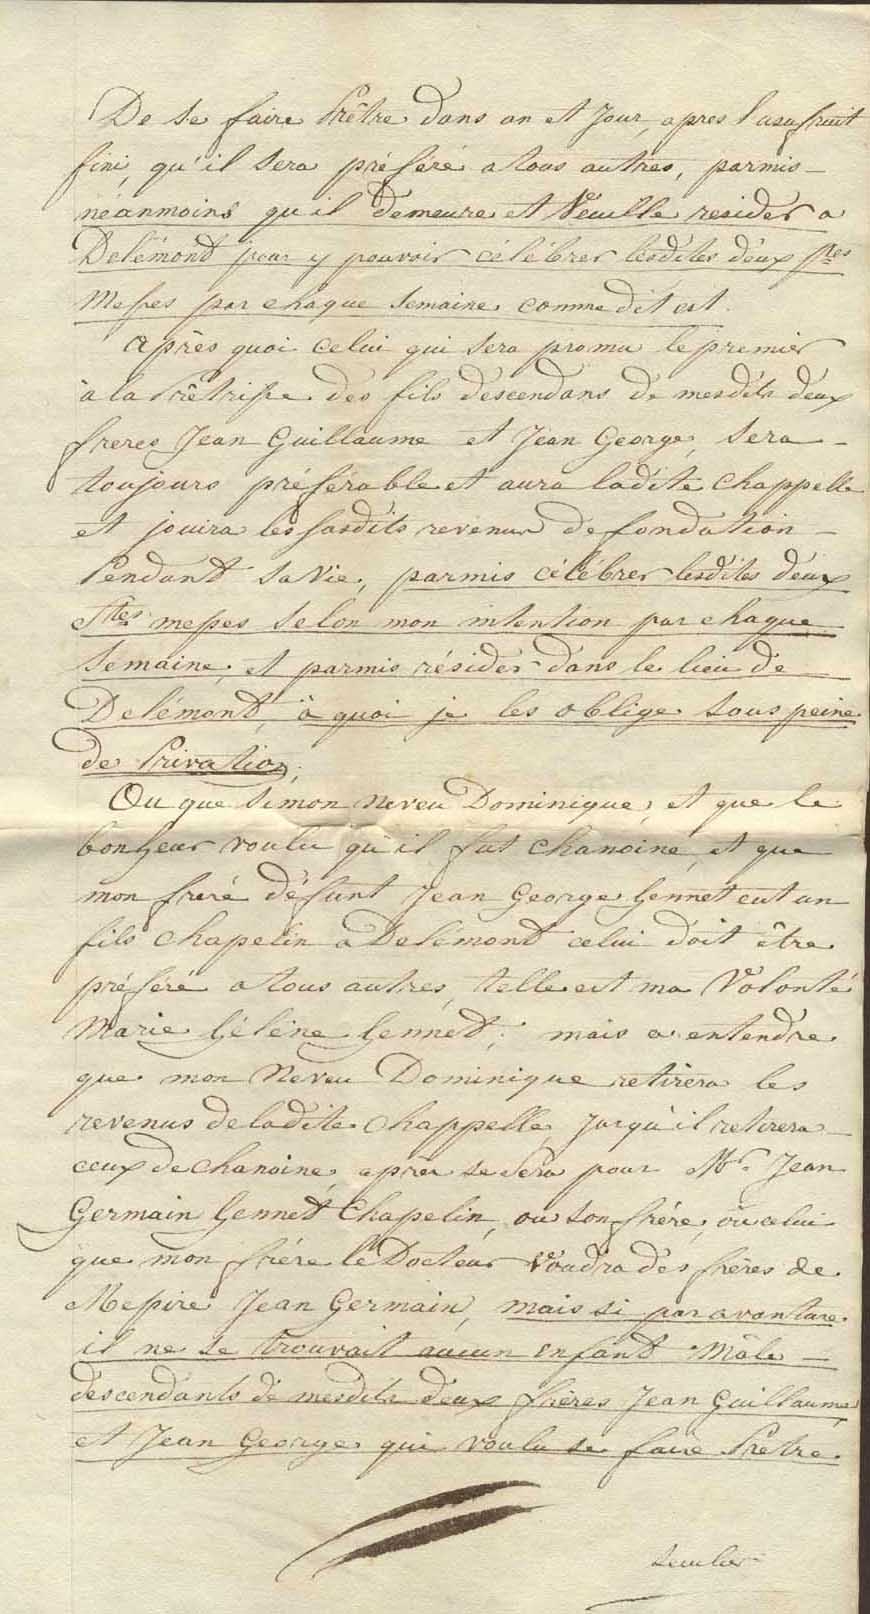 De se faire Prêtre dans an et Jour, apres l'usufruit
fini, qu'il sera préféré a tous autres, parmis –
néanmoins qu'il demeure et Veuille resider a
Delémont pour y pouvoir célébrer lesdites deux Stes
Messes par chaque semaine comme dit est.
après quoi celui qui sera promu le premier
à la Prêtrisse des fils descendans de mesdits deux
freres Jean Guillaume et Jean George, sera –
toujours préférable et aura ladite Chappelle
et jouira les susdits revenus de fondation –
Pendant sa Vie, parmis célébrer lesdites deux
Stes messes selon mon intention par chaque
Semaine, et parmis résider dans le lieu de
Delémont, à quoi je les oblige sous peine
de Privation;
Ou que Simon neveu Dominique, et que le
bonheur voulu qu'il fut Chanoine, et que
mon freré défunt Jean George Hennet eut un
fils Chapelin a Delémont celui doit être
préféré a tous autres, telle est ma Volonté
Marie Hélêne Hennet; mais a entendre
que mon Neveu Dominique retirera les
revenus de ladite Chappelle, jusqu'il retirera –
ceux de chanoine, après se sera pour Mr. Jean
Germain Hennet Chapelin, ou son frére, ou celui
que mon frére le Docteur Voudra des fréres de
Messire Jean Germain, mais si par avanture
il ne se trouvait aucun Enfant Mâle –
descendants de mesdits deux fréres Jean Guillaume
et Jean George qui voulu se faire Prêtre.
seculier